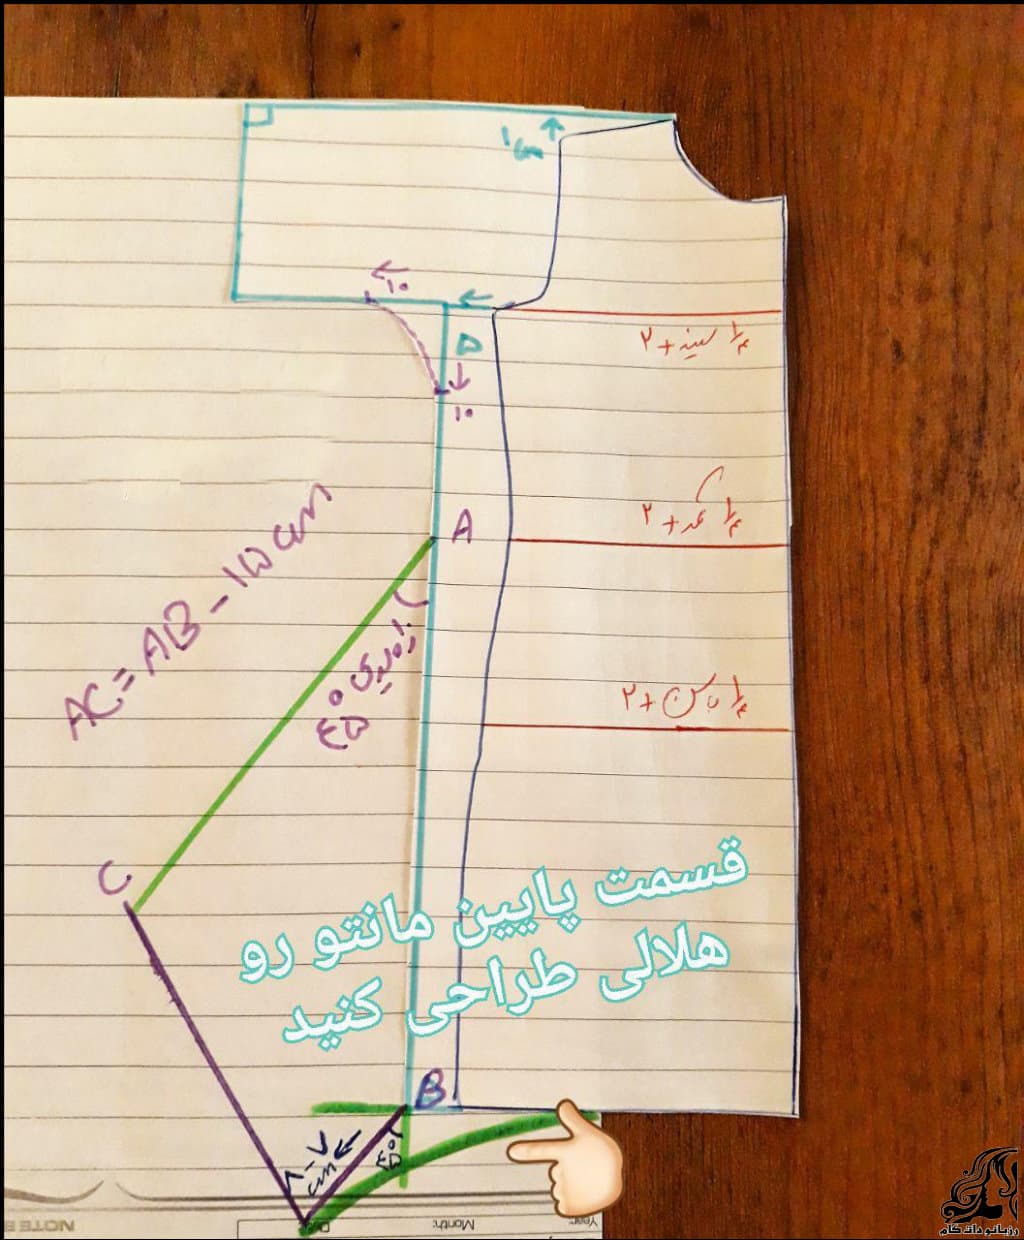 ۱ cm
۱۰
۵
۱۰
۱/۴ سینه + ۲
A
۱/۴ کمر + ۲
AC = AB - ۱۵ cm
۴۵°
۱/۴ باسن + ۲
C
قسمت پایین مانتو رو
هلالی طراحی کنید
B
۴۵°
۸-۷
cm
NOTE B
Month:
Year:
رزبانو دات کام